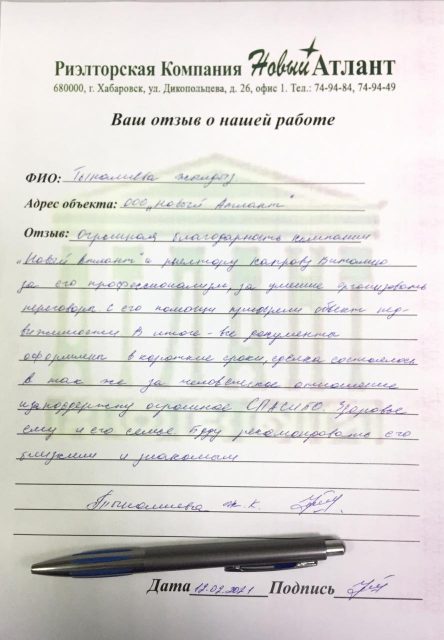 Риэлторская Компания Новый Атлант
680000, г. Хабаровск, ул. Дикопольцева, д. 26, офис 1. Тел.: 74-94-84, 74-94-49
Ваш отзыв о нашей работе
ФИО:
Адрес объекта: ООО „Новый Атлант"
Отзыв: Огромная благодарность компании
„Новый Атлант" и риэлтору Виталию
за его профессионализм, за умение организовать
переговоры с его помощи объект нед-
вижимости В итоге - все документы
оформлены в короткие сроки, сделка состоялось
В так же за человеческое отношение
огромное СПАСИБО Здоровье
ему и его семье. Буду рекомендовать его
близким и знакомым
ж. к.
Дата 12.02.2021 Подпись